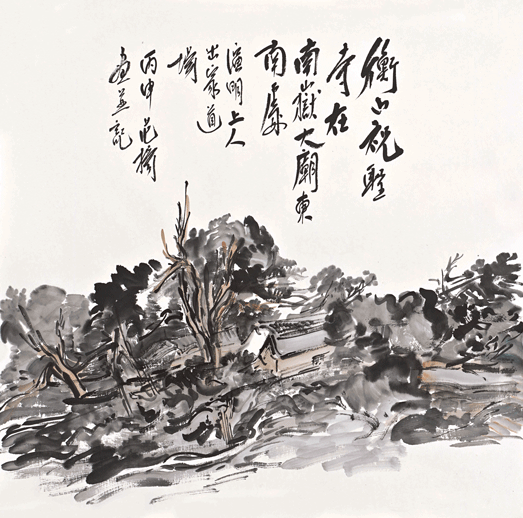 衡山祝聖
寺在
南嶽大廟東
南處
明上人
出家道
場
丙申范揚
畫並記